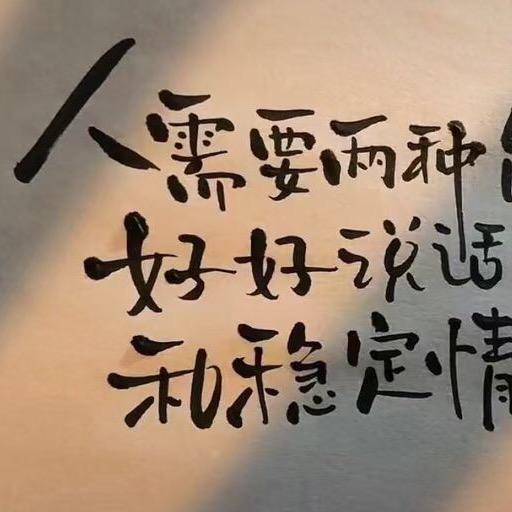 人需要两种
好好说话
和稳定情